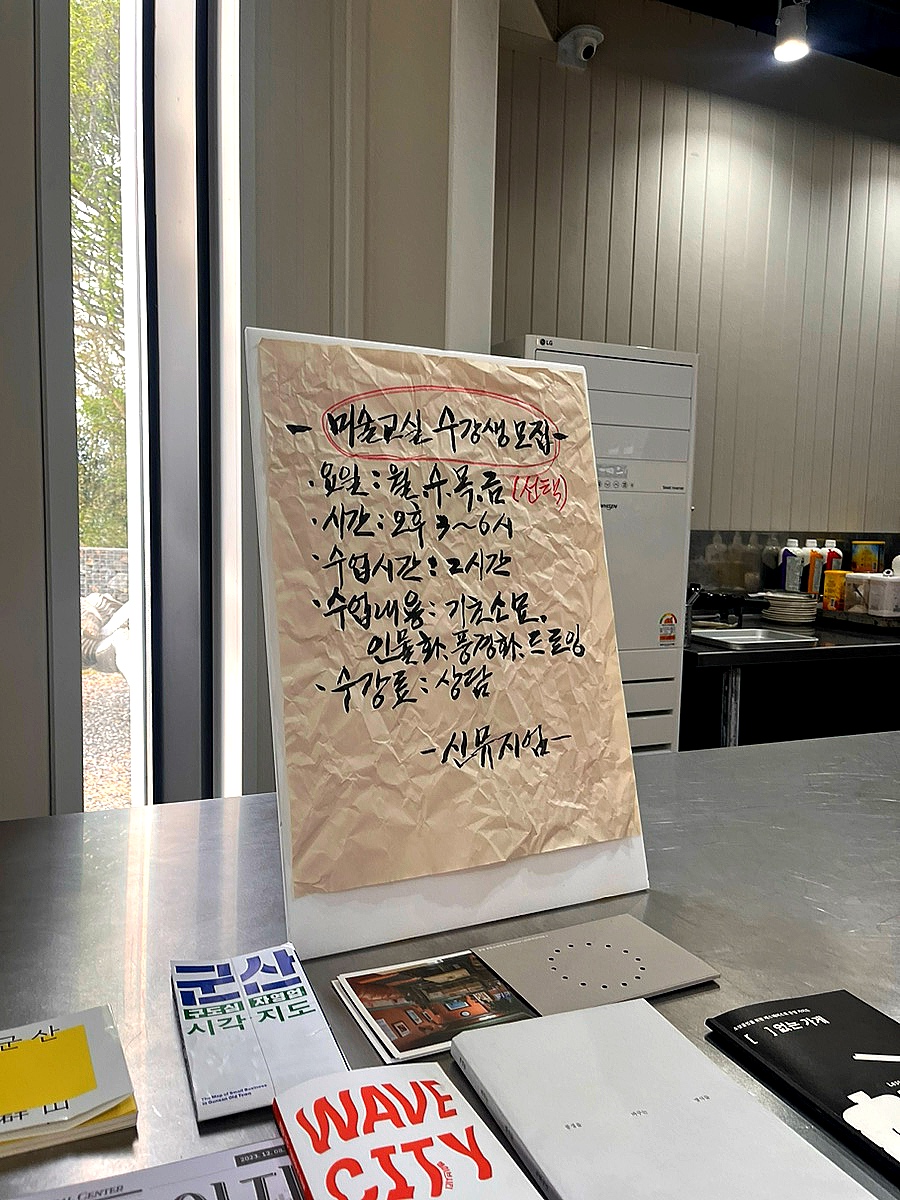 LG
- 미술교실 수강생 모집 -
· 요일 : 월, 수, 목, 금 (선택)
· 시간 : 오후 3~6시
· 수업시간 : 2시간
· 수업내용 : 기초소묘,
인물화, 풍경화, 드로잉
· 수강료 : 상담
- 신뮤지엄 -
군산
원도심 자영업
시각 지도
The Map of Small Business
in Gunsan Old Town
군산
群山
WAVE
CITY
2023. 12. 08.
CENTER
[ ] 없는 기계